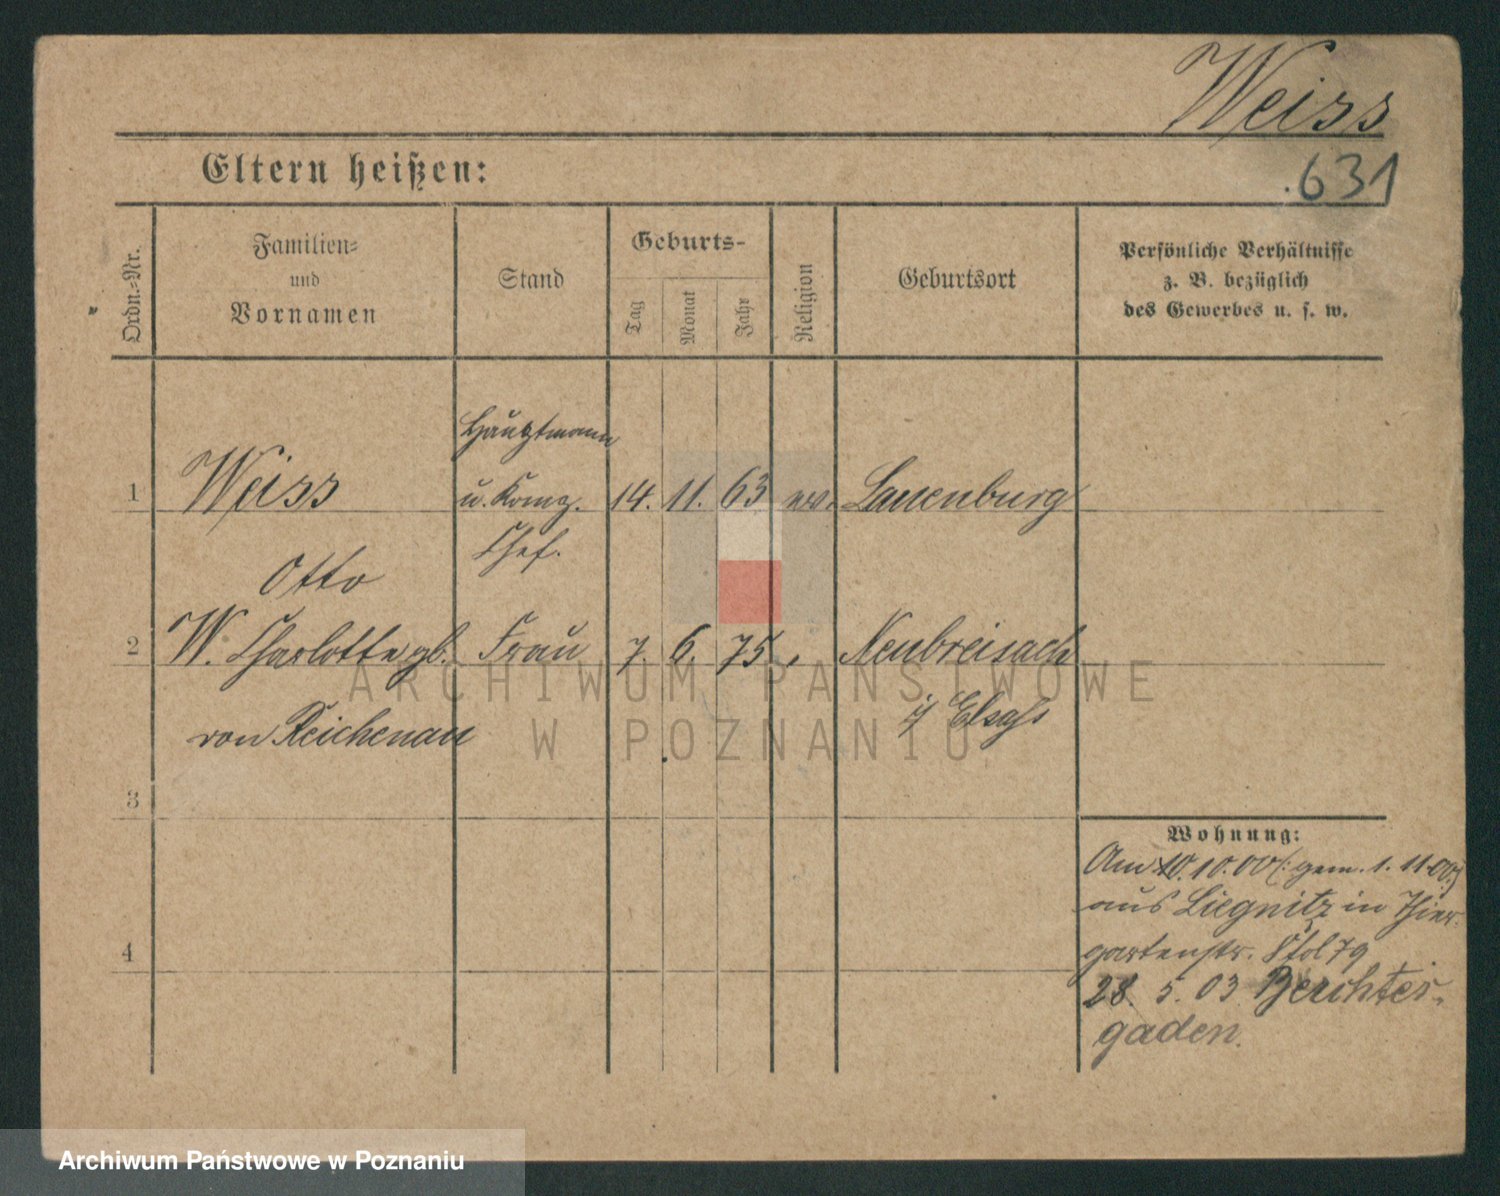 Weiss
631
Eltern heißen:
Ordn.-Nr.
Familien-
und
Vornamen
Stand
Geburts-
Tag
Monat
Jahr
Religion
Geburtsort
Persönliche Verhältnisse
z. B. bezüglich
des Gewerbes u. s. w.
Hauptmann
1 Weiss u. Komp. 14. 11. 63 ev. Lauenburg
Chef.
Otto
2 W. Charlotte gb. Frau 7. 6. 75 Neubreisach
von Reichenau i/ Elsaß
ARCHIWUM PAŃSTWOWE
W POZNANIU
3
Wohnung:
Am 10.10.00 (: gem. 1. 11.00:)
aus Liegnitz in Thier-
4 gartenstr. 8 fol 79
28. 5. 03 Berchtes-
gaden.
Archiwum Państwowe w Poznaniu